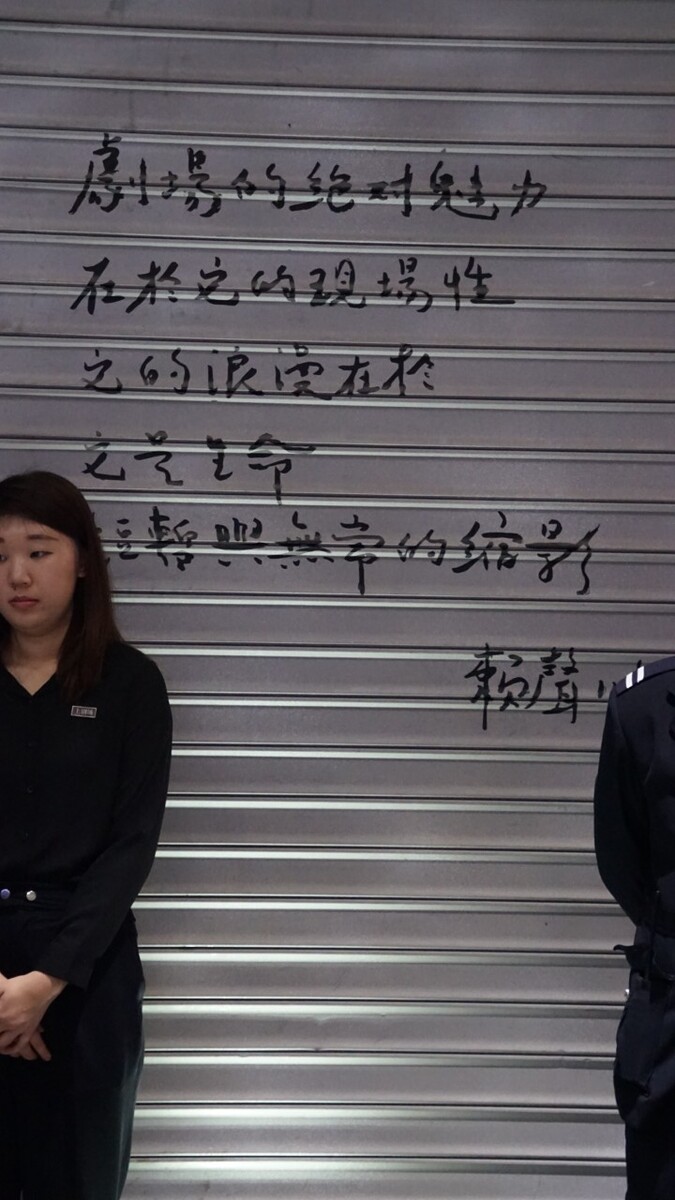 劇場的絕对魅力
在於它的現場性
它的浪漫在於
它是生命
短暫與無常的縮影
賴聲